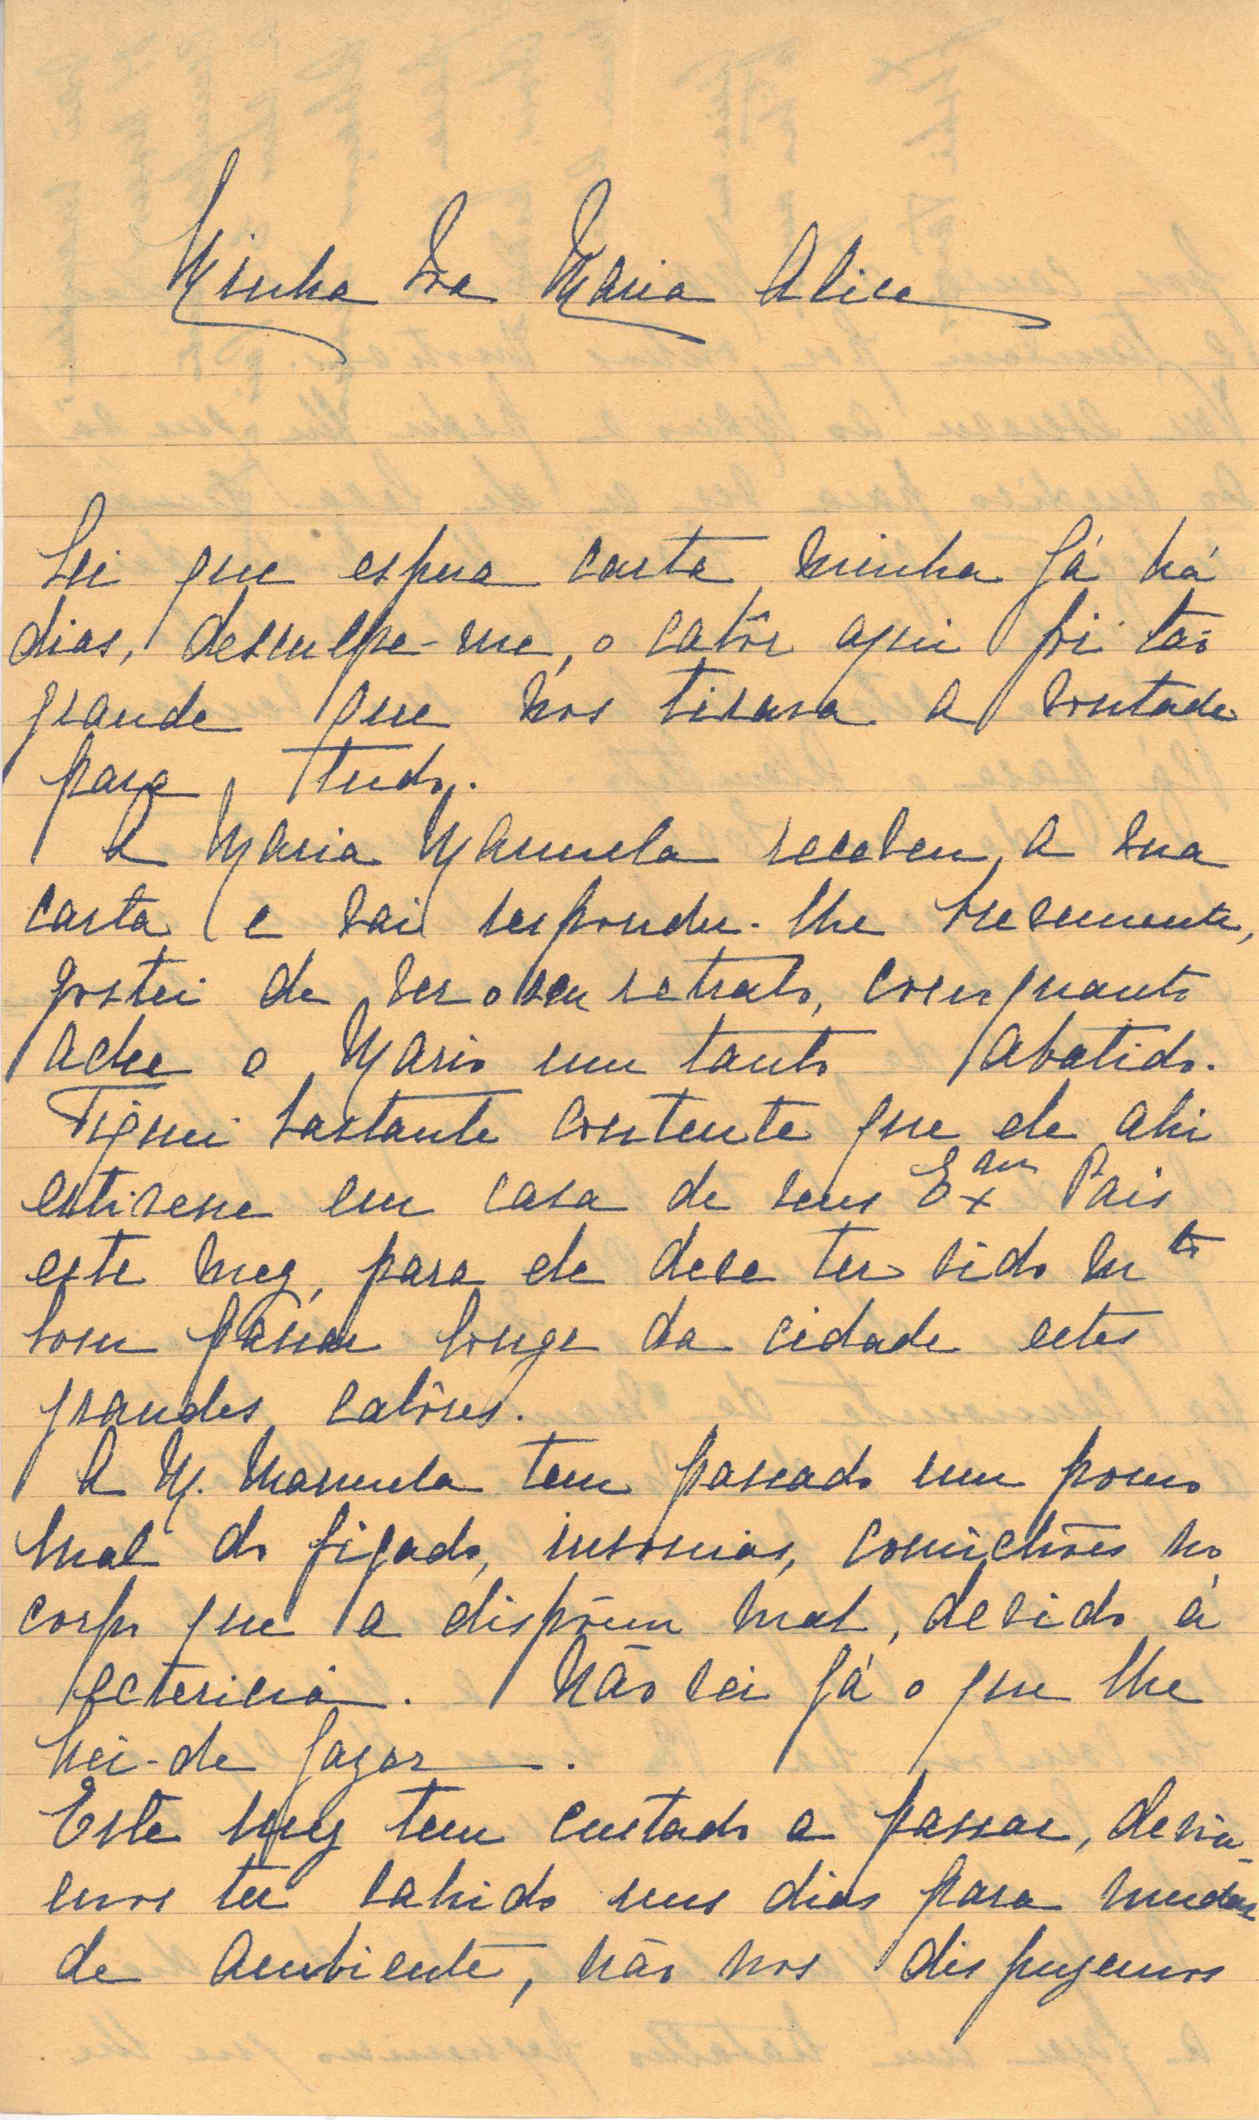 Minha Sra Maria Alice
Sei que espera carta minha já há
dias, desculpe-me, o calôr aqui foi tão
grande que nos tirava a vontade
para tudo.
A Maria Manuela recebeu a sua
carta e vai responder-lhe brevemente,
gostei de ver o seu retrato, comquanto
ache o Mario um tanto abatido.
Fiquei bastante contente que ele ahi
estivesse em casa de seus Exmos Pais
este mez, para ele deve ter sido mto
bom passar longe da cidade estes
grandes calôres.
A M. Manuela tem passado um pouco
mal do figado, insonias, comichões no
corpo que a dispõem mal, devido á
ictericia. Não sei já o que lhe
hei-de fazer.
Este mez tem custado a passar, devia-
mos ter sahido uns dias para mudar
de ambiente, não nos dispuzemos